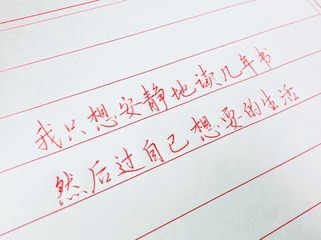 我只想安静地读几年书
然后过自己想要的生活